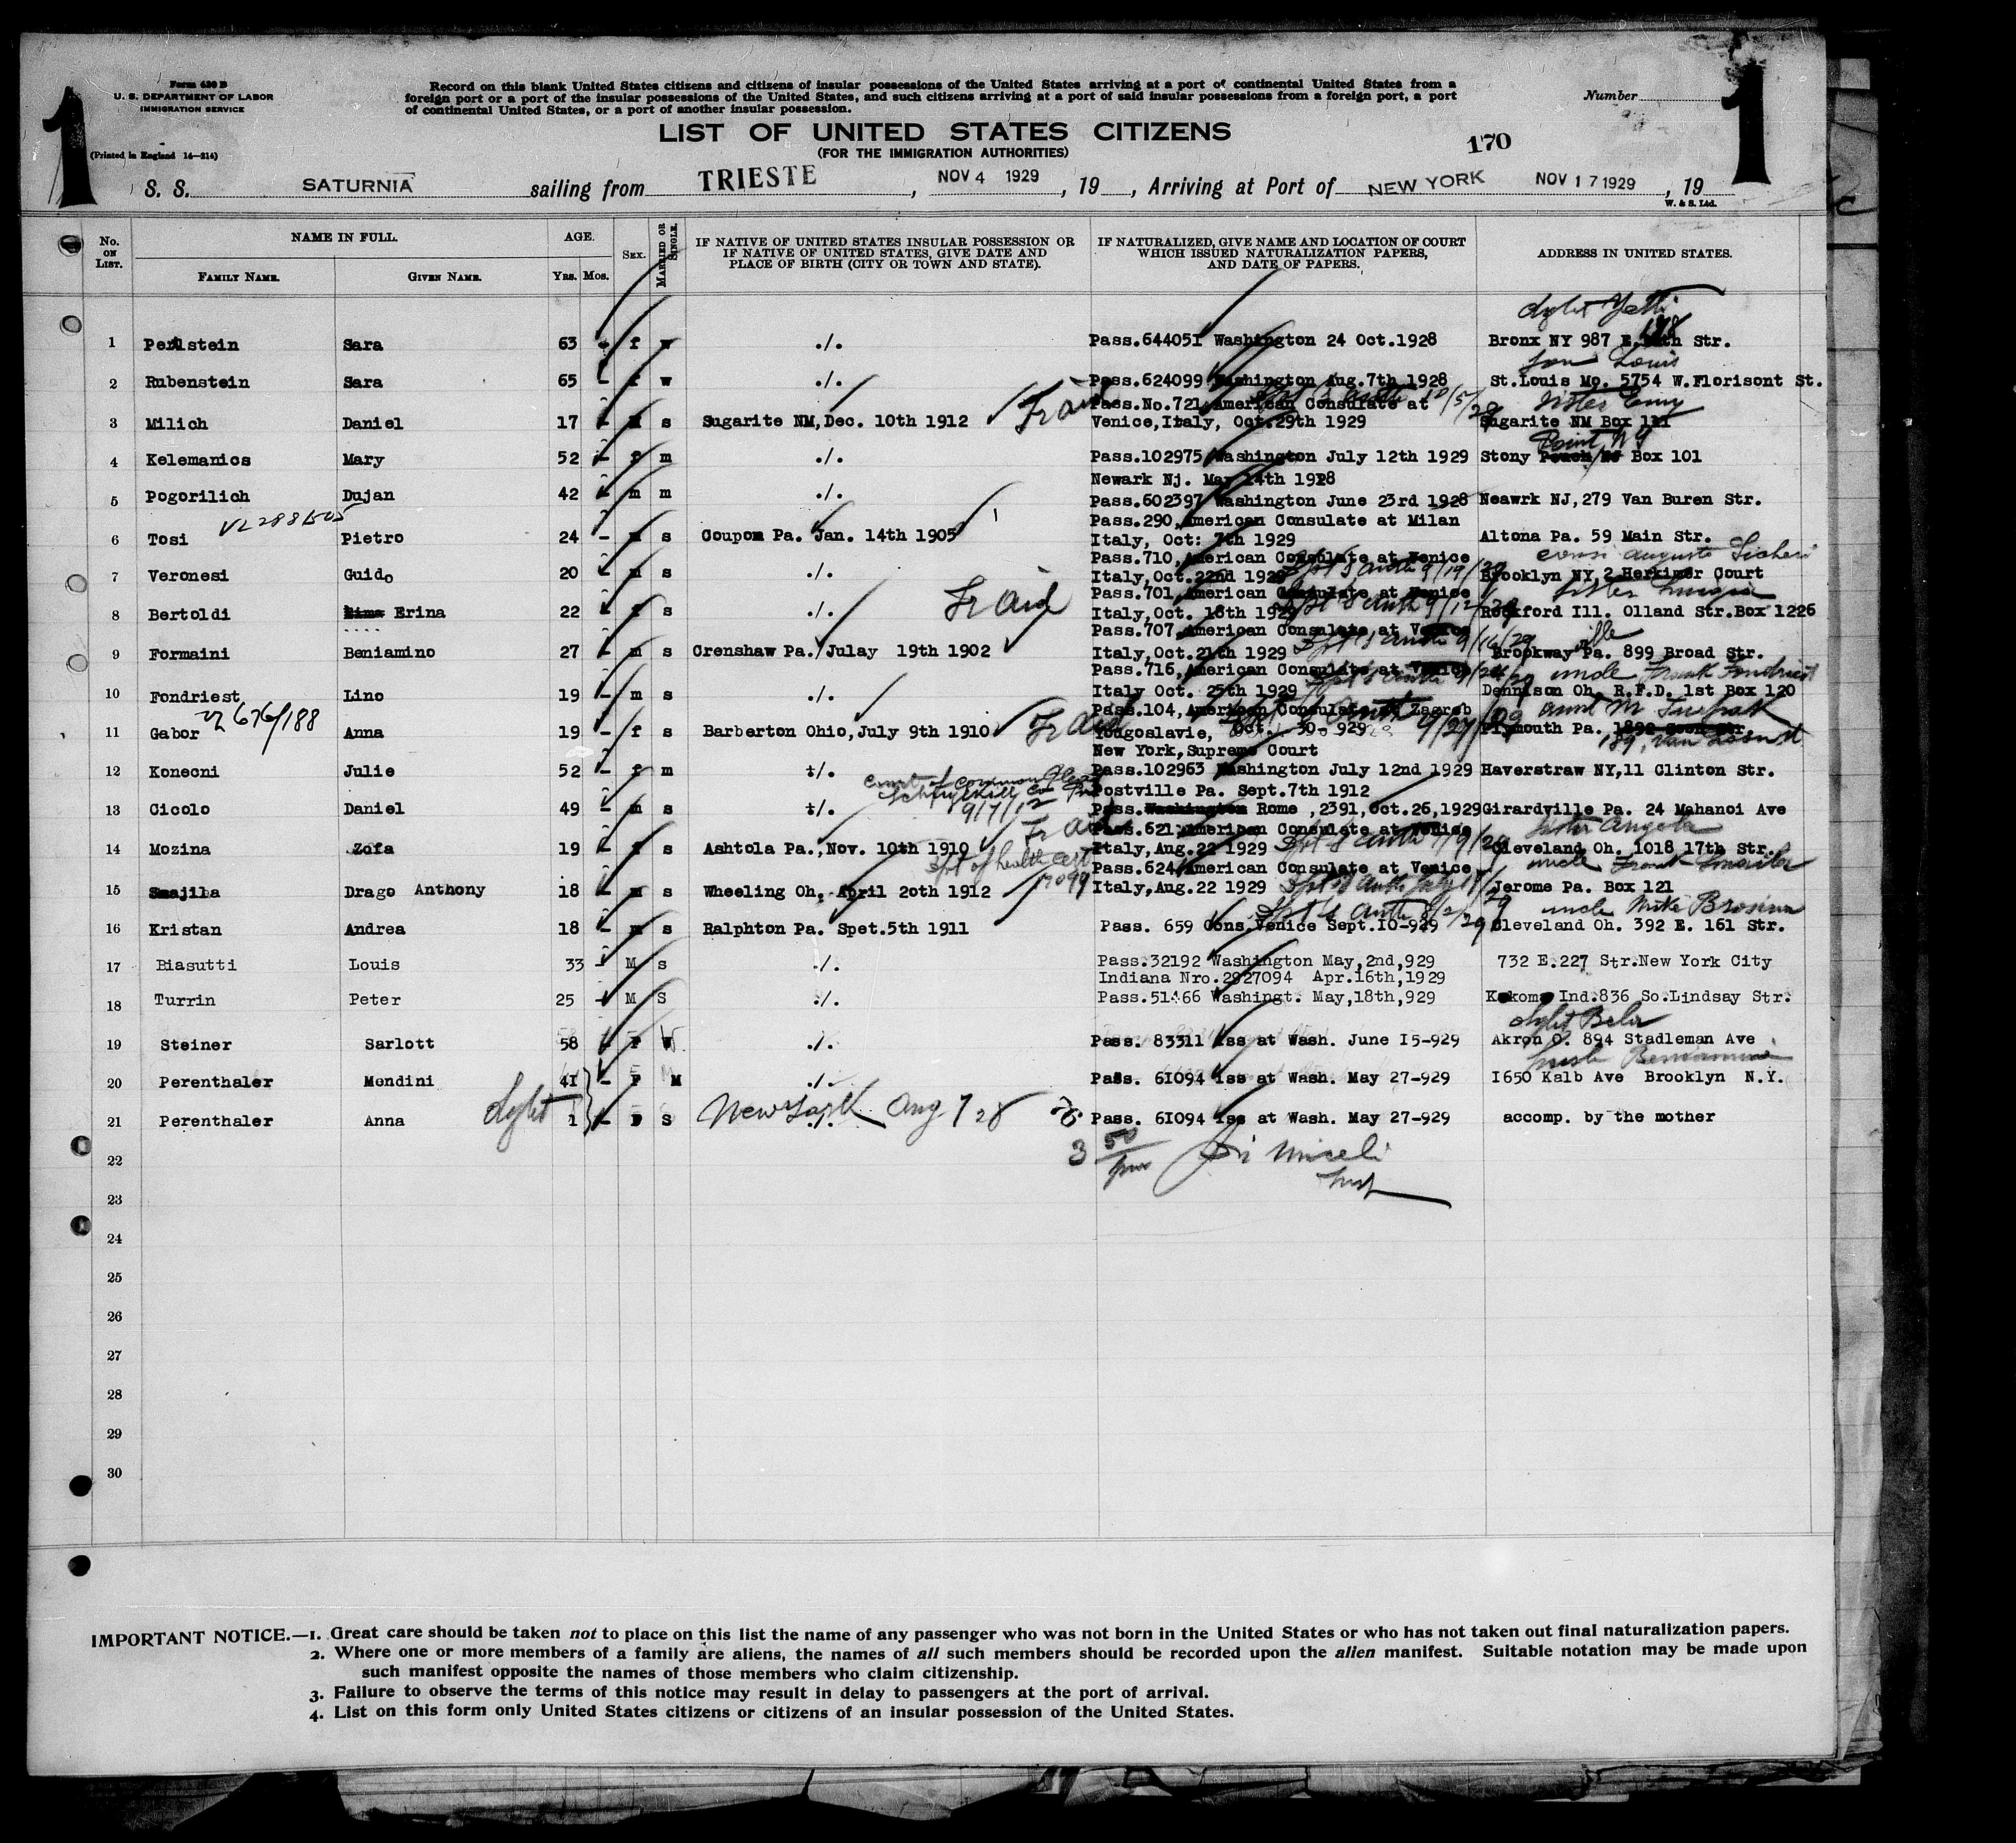 1
1
Form 630 B
U. S. DEPARTMENT OF LABOR
IMMIGRATION SERVICE
(Printed in England 14—214)
Record on this blank United States citizens and citizens of insular possessions of the United States arriving at a port of continental United States from a
foreign port or a port of the insular possessions of the United States, and such citizens arriving at a port of said insular possessions from a foreign port, a port
of continental United States, or a port of another insular possession.
Number
LIST OF UNITED STATES CITIZENS
(FOR THE IMMIGRATION AUTHORITIES)
170
S. S. SATURNIA sailing from TRIESTE, NOV 4 1929, 19 , Arriving at Port of NEW YORK NOV 17 1929, 19
W. & S. Ltd.
No. ON LIST.
NAME IN FULL.
FAMILY NAME.
GIVEN NAME.
AGE.
YRS. MOS.
SEX.
MARRIED OR SINGLE.
IF NATIVE OF UNITED STATES INSULAR POSSESSION OR
IF NATIVE OF UNITED STATES, GIVE DATE AND
PLACE OF BIRTH (CITY OR TOWN AND STATE).
IF NATURALIZED, GIVE NAME AND LOCATION OF COURT
WHICH ISSUED NATURALIZATION PAPERS,
AND DATE OF PAPERS.
ADDRESS IN UNITED STATES.
1 Perlstein Sara 63 - f w ./. Pass.644051 Washington 24 Oct.1928 Bronx NY 987 E. Str.
son Louis
2 Rubenstein Sara 65 - f w ./. Pass.624099 Washington Aug.7th 1928 St.Louis Mo. 5754 W.Florisont St.
Pass.No.721,American Consulate at 10/5/29 sister Emy
3 Milich Daniel 17 - M s Sugarite NM,Dec. 10th 1912 Fr aid Venice,Italy, Oct.29th 1929 Sugarite NM Box 111
Point NY
4 Kelemanics Mary 52 - f m ./. Pass.102975 Washington July 12th 1929 Stony Box 101
Newark Nj. May 14th 1928
5 Pogorilich Dujan 42 - m m ./. Pass.602397 Washington June 23rd 1928 Neawrk NJ,279 Van Buren Str.
Pass.290,American Consulate at Milan
6 Tosi Pietro 24 - m s Coupon Pa. Jan. 14th 1905 Italy, Oct: 7th 1929 Altona Pa. 59 Main Str.
Pass.710,American Consulate at Venice
7 Veronesi Guido 20 - m s ./. Italy,Oct.22nd 1929 9/19/29 Brooklyn NY,2 Herkimer Court
Pass.701,American Consulate at Venice sister
8 Bertoldi Erina 22 - f s ./. Fr aid Italy,Oct. 18th 1929 Rockford Ill. Olland Str.Box 1226
Pass.707,American Consulate at Venice
9 Formaini Beniamino 27 - m s Crenshaw Pa. Julay 19th 1902 Italy,Oct.21th 1929 9/16/29 Brookwayville Pa. 899 Broad Str.
Pass.716,American Consulate at Venice uncle Frank Fondriest
10 Fondriest Lino 19 - m s ./. Italy Oct. 25th 1929 Dennison Oh. R.F.D. 1st Box 120
Pass.104,American Consulate Zagreb aunt M
11 Gabor 676/188 Anna 19 - f s Barberton Ohio,July 9th 1910 Fr aid Yougoslavie, Oct. 30- 929 9/27/29 Plymouth Pa.
New York,Supreme Court
12 Konecni Julie 52 - f m ./. Pass.102963 Washington July 12nd 1929 Haverstraw NY,11 Clinton Str.
court of common Pleas
Schuylkill Co Pa Postville Pa. Sept.7th 1912
13 Cicolo Daniel 49 - m s ./. 9/7/12 Pass. Rome ,2391,Oct.26,1929 Girardville Pa. 24 Mahanoi Ave
Fr aid Pass.621,American Consulate at Venice sister Angela
14 Mozina Zofa 19 - f s Ashtola Pa.,Nov. 10th 1910 Italy,Aug.22 1929 Cleveland Oh. 1018 17th Str.
Pass.624,American Consulate at Venice uncle Frank
15 Smajila Drago Anthony 18 - m s Wheeling Oh. April 20th 1912 Italy,Aug.22 1929 Jerome Pa. Box 121
uncle Mike
16 Kristan Andrea 18 - m s Ralphton Pa. Spet.5th 1911 Pass. 659 Cons.Venice Sept.10-929 Cleveland Oh. 392 E. 161 Str.
17 Biasutti Louis 33 - M s ./. Pass.32192 Washington May,2nd,929 732 E.227 Str.New York City
Indiana Nro.2927094 Apr.16th,1929
18 Turrin Peter 25 - M S ./. Pass.51466 Washingt. May,18th,929 Kokomo Ind.836 So.Lindsay Str.
19 Steiner Sarlott 58 - F W ./. Pass. 83311 iss at Wash. June 15-929 Akron O. 894 Stadleman Ave
20 Perenthaler Mendini 41 - F M ./. Pass. 61094 iss at Wash. May 27-929 1650 Kalb Ave Brooklyn N.Y.
21 Perenthaler Anna 1 - S New York Aug 7 28 ./. Pass. 61094 iss at Wash. May 27-929 accomp. by the mother
22
23
24
25
26
27
28
29
30
IMPORTANT NOTICE.—1. Great care should be taken not to place on this list the name of any passenger who was not born in the United States or who has not taken out final naturalization papers.
2. Where one or more members of a family are aliens, the names of all such members should be recorded upon the alien manifest. Suitable notation may be made upon
such manifest opposite the names of those members who claim citizenship.
3. Failure to observe the terms of this notice may result in delay to passengers at the port of arrival.
4. List on this form only United States citizens or citizens of an insular possession of the United States.